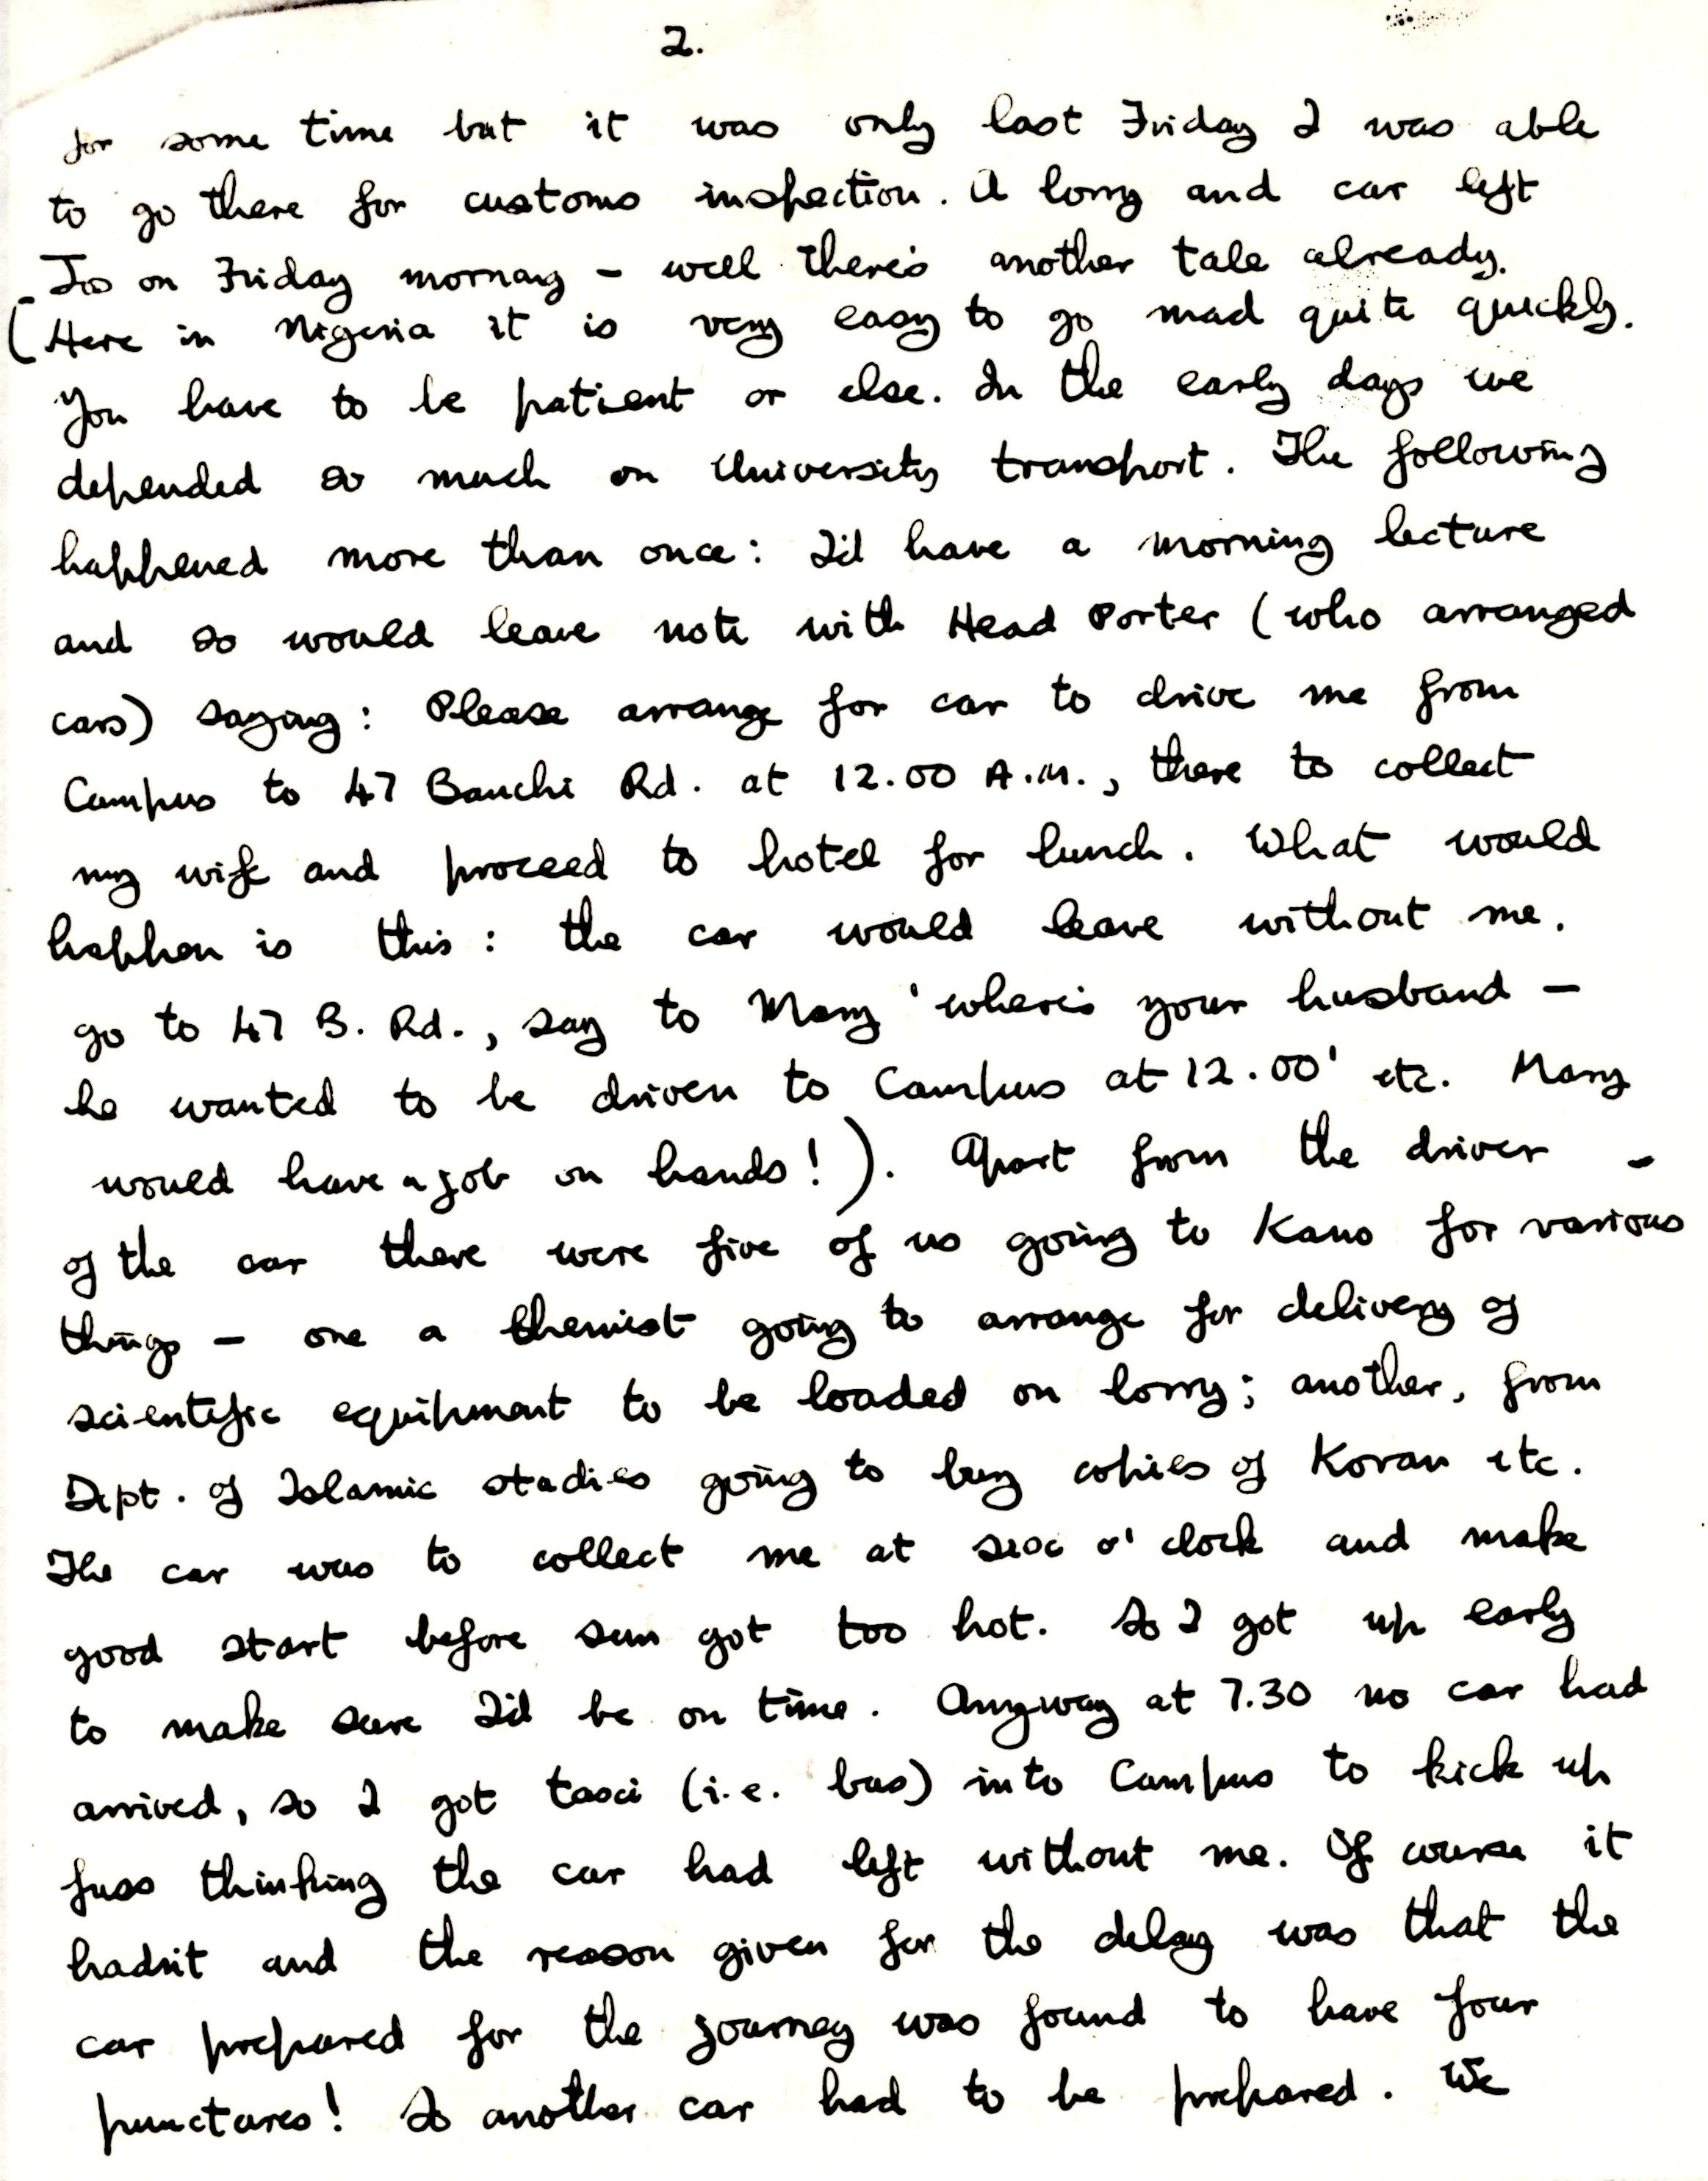 2.
for some time but it was only last Friday I was able
to go there for customs inspection. A lorry and car left
Jos on Friday mornang – well there's another tale already.
(Here in Nigeria it is very easy to go mad quite quickly.
You have to be patient or else. In the early days we
depended so much on University transport. The following
happened more than once: I'd have a morning lecture
and so would leave note with Head Porter (who arranged
cars) saying: Please arrange for car to drive me from
Campus to 47 Bauchi Rd. at 12.00 A.M., there to collect
my wife and proceed to hotel for lunch. What would
happen is this: the car would leave without me.
go to 47 B. Rd., say to Mary 'where's your husband –
he wanted to be driven to Campus at 12.00' etc. Mary
would have a job on hands!). Apart from the driver -
of the car there were five of us going to Kano for various
things – one a chemist going to arrange for delivery of
scientific equipment to be loaded on lorry; another, from
Dept. of Islamic studies going to buy copies of Koran etc.
The car was to collect me at six o'clock and make
good start before sun got too hot. So I got up early
to make sure I'd be on time. Anyway at 7.30 no car had
arrived, so I got taxi (i.e. bus) into Campus to kick up
fuss thinking the car had left without me. Of course it
hadn't and the reason given for the delay was that the
car prepared for the journey was found to have four
punctures! So another car had to be prepared. We